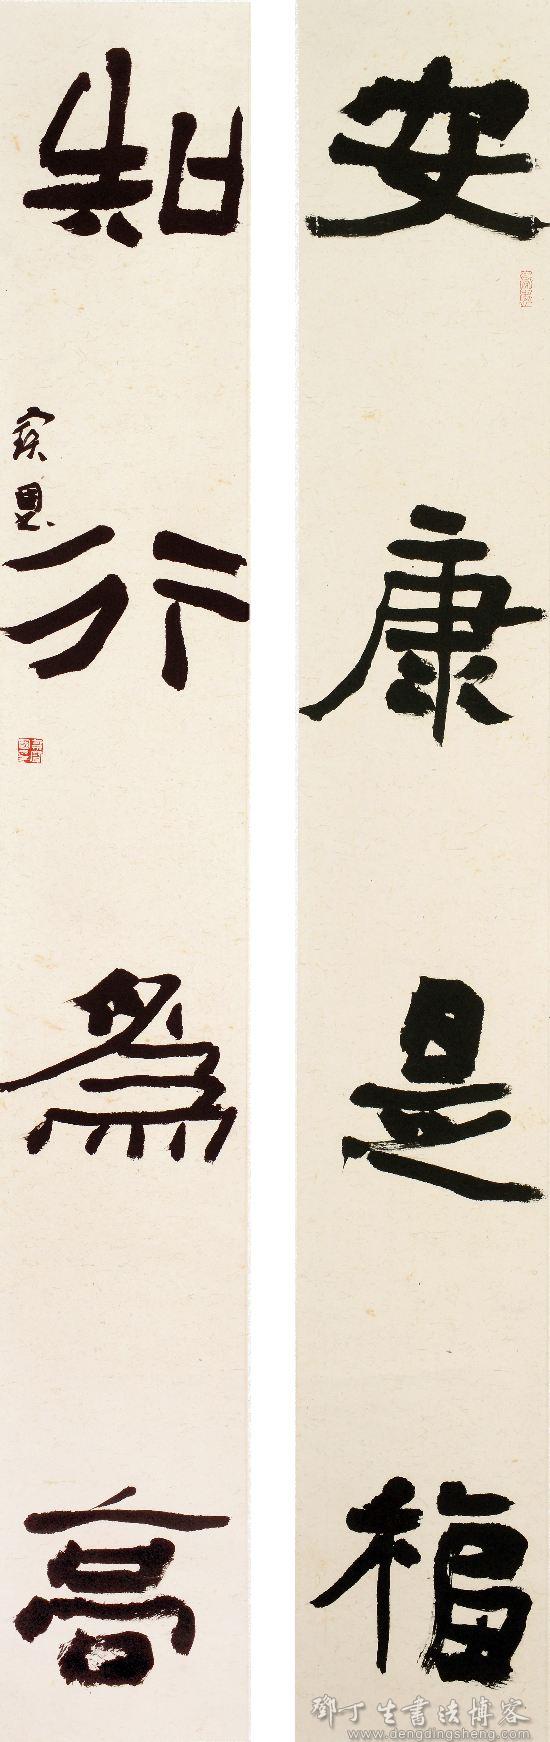 安康是福
知行為高
鄧丁生書法博客
www.dengdingsheng.com